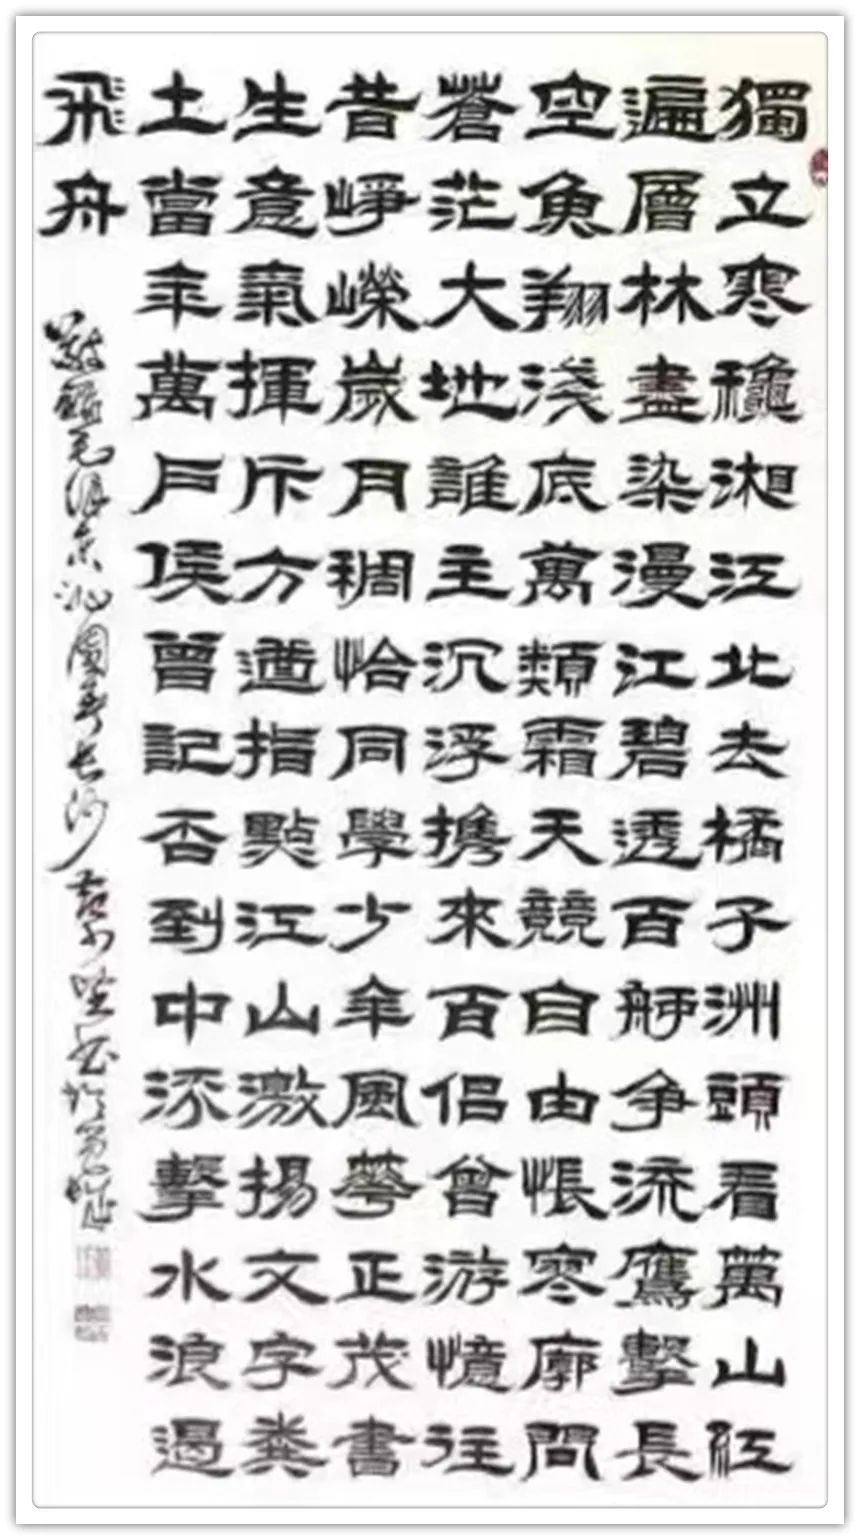 獨立寒龝湘江北去橘子洲頭看萬山紅
遍層林盡染漫江碧透百舸争流鷹擊長
空魚翔淺底萬類霜天競自由悵寒廓問
蒼茫大地誰主沉浮携來百侶曾游憶往
昔崢嶸歲月稠恰同學少年風華正茂書
生意氣揮斥方遒指點江山激揚文字糞
土當年萬戶侯曾記否到中流擊水浪遏
飛舟
敬錄毛澤東沁園春長沙